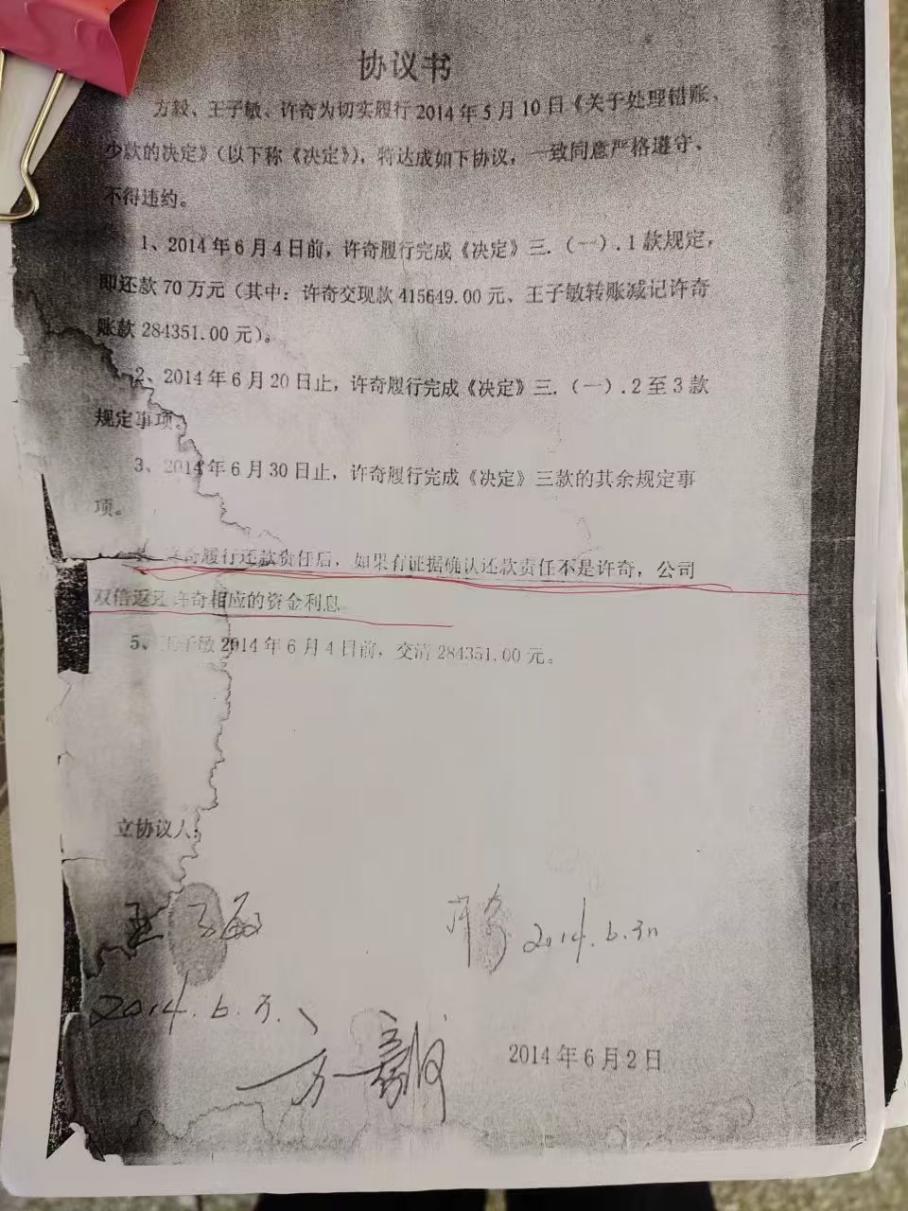 协议书
方毅、王子敏、许奇为切实履行2014年5月10日《关于处理错账、
少款的决定》(以下称《决定》),特达成如下协议,一致同意严格遵守、
不得违约。
1、2014年6月4日前,许奇履行完成《决定》三.(一).1款规定,
即还款70万元(其中:许奇交现款415649.00元、王子敏转账减记许奇
账款284351.00元)。
2、2014年6月20日止,许奇履行完成《决定》三.(一).2至3款
规定事项。
3、2014年6月30日止,许奇履行完成《决定》三款的其余规定事
项。
许奇履行还款责任后,如果有证据确认还款责任不是许奇,公司
双倍返还许奇相应的资金利息
5、王子敏2014年6月4日前,交清284351.00元。
立协议人:
王子敏
许奇 2014.6.3
2014.6.
方毅
2014年6月2日